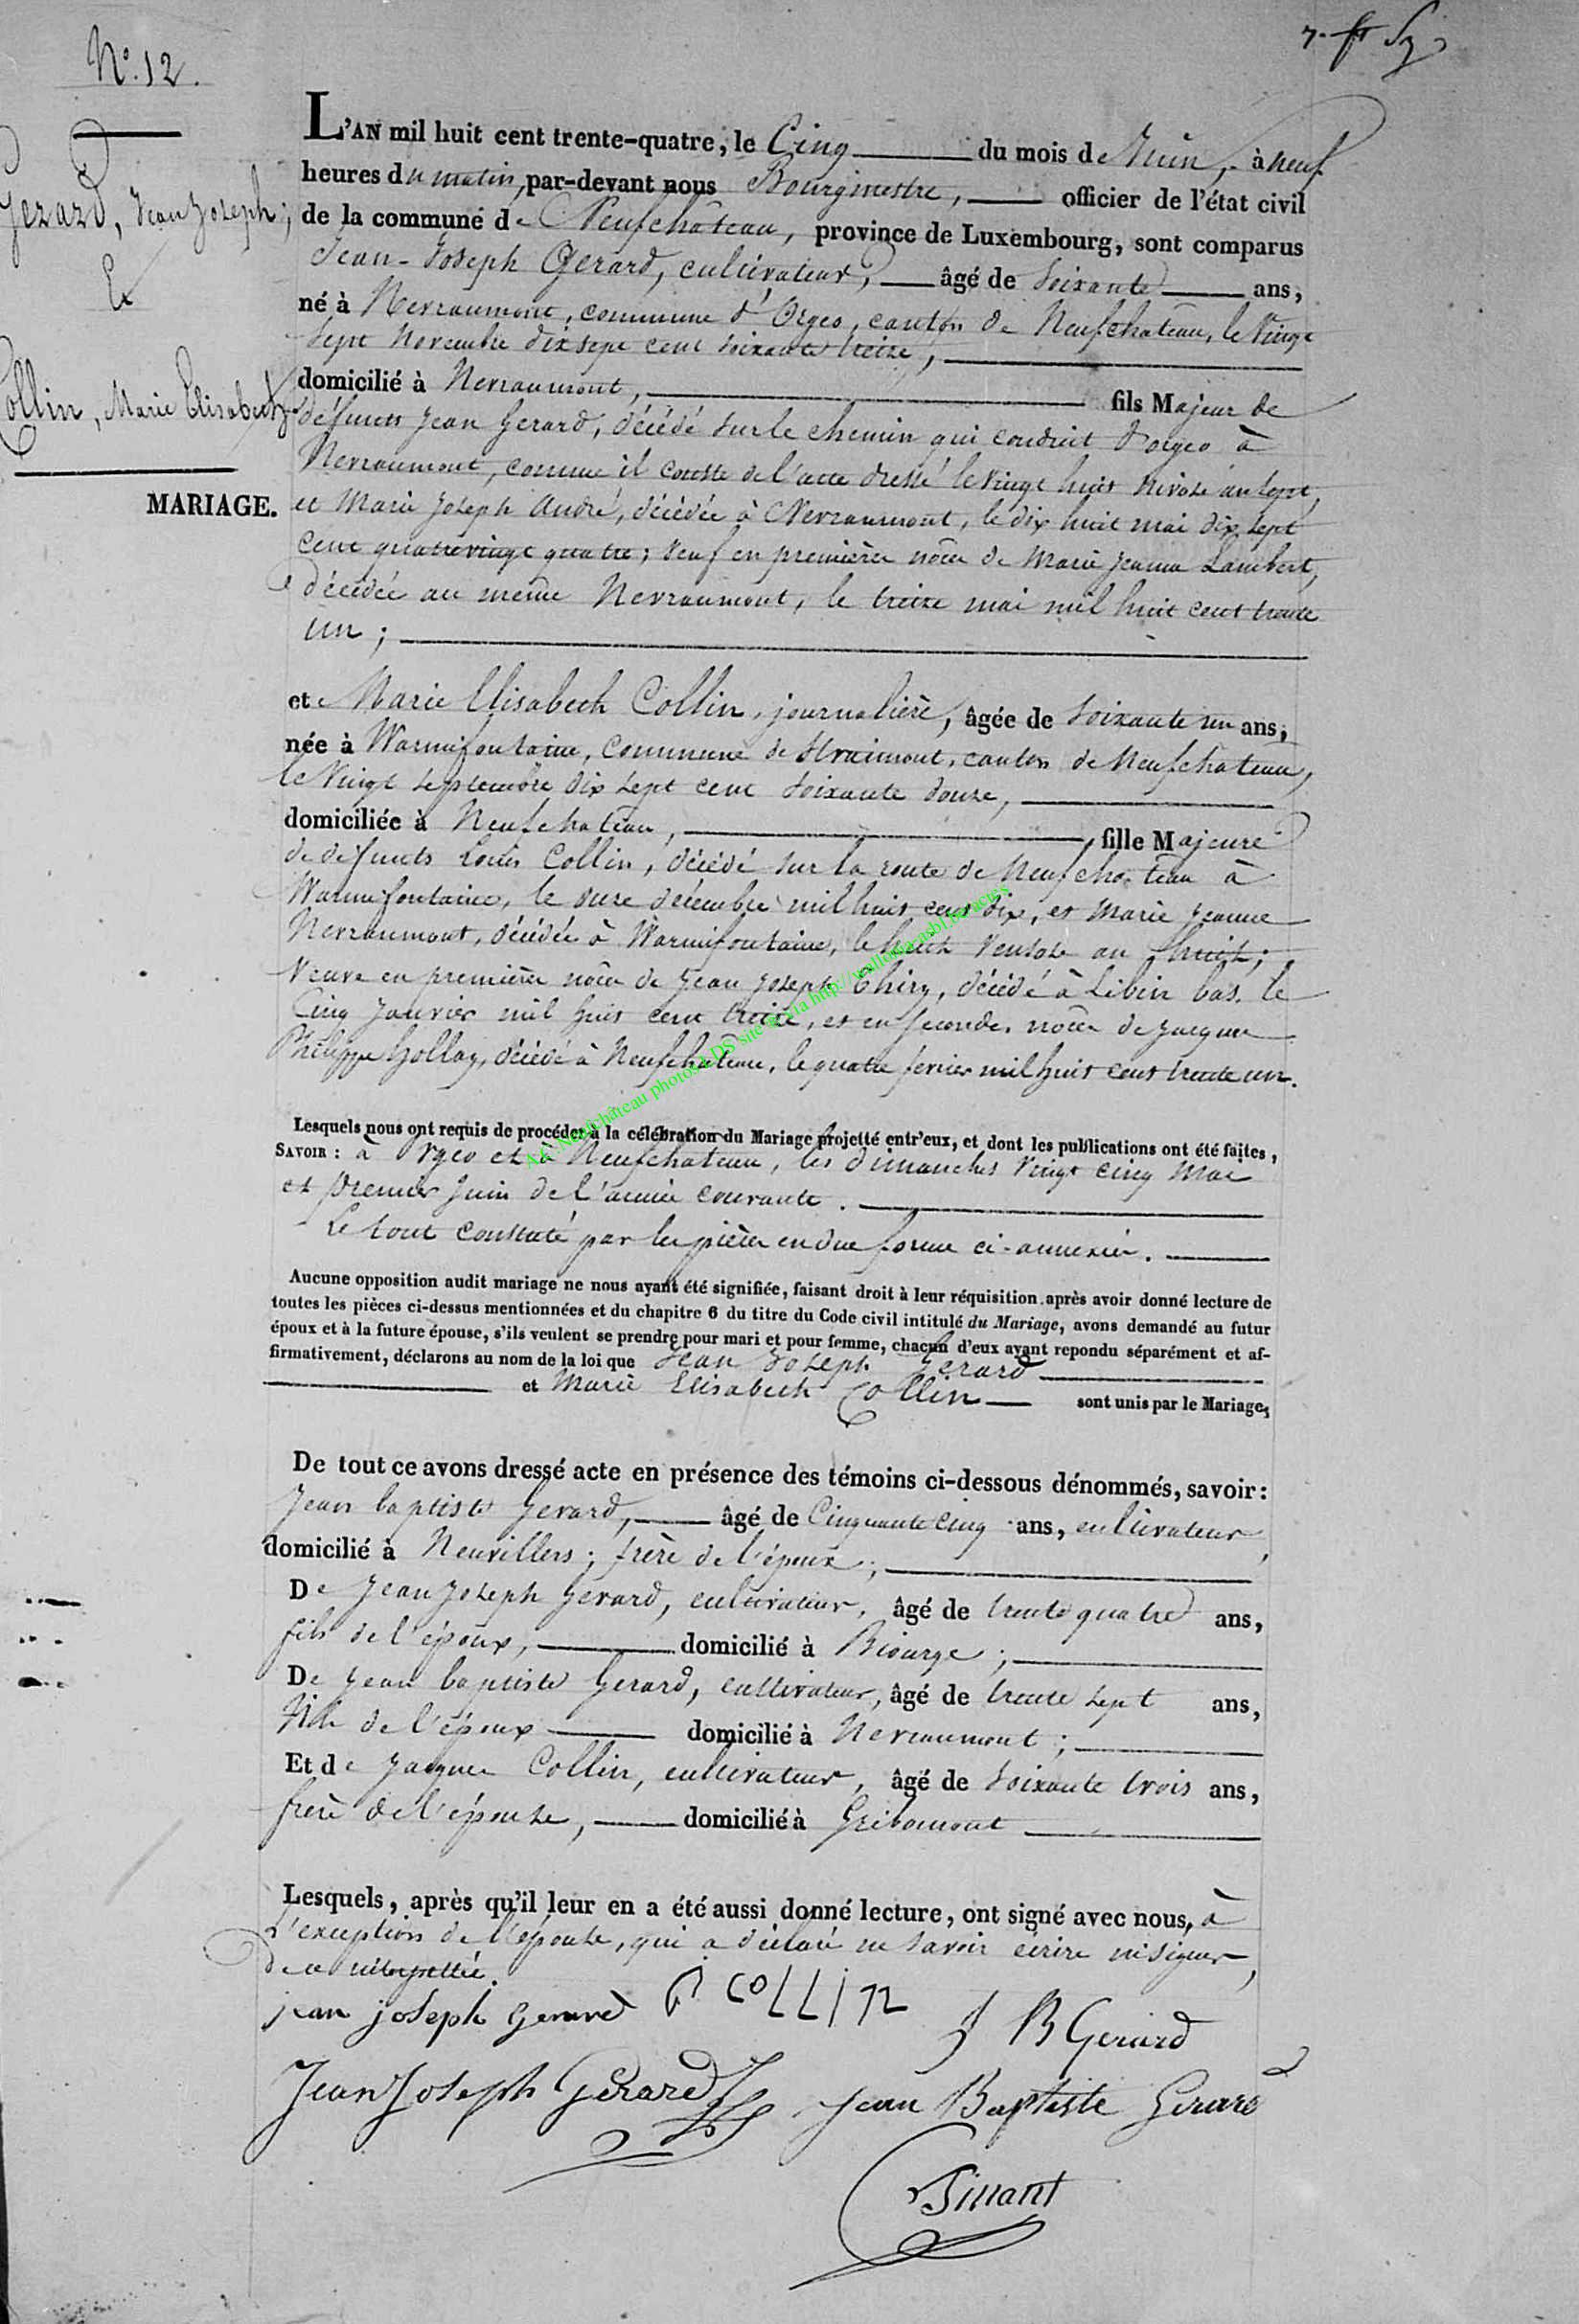 N.º 12.
7. ft
Gerard, Jean Joseph;
Et
Collin, Marie Elisabeth
MARIAGE.
L'AN mil huit cent trente-quatre, le Cinq du mois de Juin, à neuf
heures du matin, par-devant nous Bourgmestre, officier de l'état civil
de la commune de Neufchâteau, province de Luxembourg, sont comparus
Jean-Joseph Gerard, cultivateur, âgé de soixante ans,
né à Nevraumont, commune d'Orgeo, canton de Neufchateau, le vingt
sept Novembre dix sept cent soixante treize,
domicilié à Nevraumont, fils Majeur de
défunts Jean Gerard, décédé sur le chemin qui conduit d'orgeo à
Nevraumont, comme il conste de l'acte dressé le vingt huit nivose an sept,
et Marie Joseph André, décédée à Nevraumont, le dix huit mai dix sept
cent quatrevingt quatre; veuf en première noce de Marie Jeanne Lambert,
décédée au même Nevraumont, le treize mai mil huit cent trente
un;
et Marie Elisabeth Collin, journalière, âgée de soixante un ans,
née à Warmifontaine, commune de Straimont, canton de Neufchateau,
le vingt septembre dix sept cent soixante douze,
domiciliée à Neufchateau, fille Majeure
de défunts Louis Collin, décédé sur la route de Neufchateau à
Warmifontaine, le onze décembre mil huit cent dix, et Marie Jeanne
Nevraumont, décédée à Warmifontaine, le huit ventose an huit;
Veuve en première noce de Jean Joseph Thiry, décédé à Libin bas, le
Cinq Janvier mil huit cent treize, et en seconde noce de Jacques
Philippe Hollay, décédé à Neufchateau, le quatre fevrier mil huit cent trente un.
A.C. Neufchâteau photos LDS site via http://wallonica.asbl.be/actes
Lesquels nous ont requis de procéder à la célébration du Mariage projetté entr'eux, et dont les publications ont été faites,
SAVOIR : à Orgeo et à Neufchateau, les dimanches vingt cinq Mai
et premier Juin de l'année courante.
Le tout constaté par les pièces en due forme ci-annexées.
Aucune opposition audit mariage ne nous ayant été signifiée, faisant droit à leur réquisition après avoir donné lecture de
toutes les pièces ci-dessus mentionnées et du chapitre 6 du titre du Code civil intitulé du Mariage, avons demandé au futur
époux et à la future épouse, s'ils veulent se prendre pour mari et pour femme, chacun d'eux ayant repondu séparément et af-
firmativement, déclarons au nom de la loi que Jean Joseph Gerard
et Marie Elisabeth Collin sont unis par le Mariage,
De tout ce avons dressé acte en présence des témoins ci-dessous dénommés, savoir:
Jean baptiste Gerard, âgé de Cinquante cinq ans, cultivateur,
domicilié à Neuvillers; frère de l'époux;
De Jean Joseph Gerard, cultivateur, âgé de trente quatre ans,
fils de l'époux, domicilié à Biourge;
De Jean baptiste Gerard, cultivateur, âgé de trente sept ans,
fils de l'époux domicilié à Nevraumont;
Et de Jacques Collin, cultivateur, âgé de soixante trois ans,
frère de l'épouse, domicilié à Gribomont
Lesquels, après qu'il leur en a été aussi donné lecture, ont signé avec nous, à
l'exception de l'épouse, qui a déclaré ne savoir écrire ni signer,
de ce interpellée.
jean joseph Gerard COLLIN J B Gerard
Jean Joseph Gérard Jean Baptiste Gerard